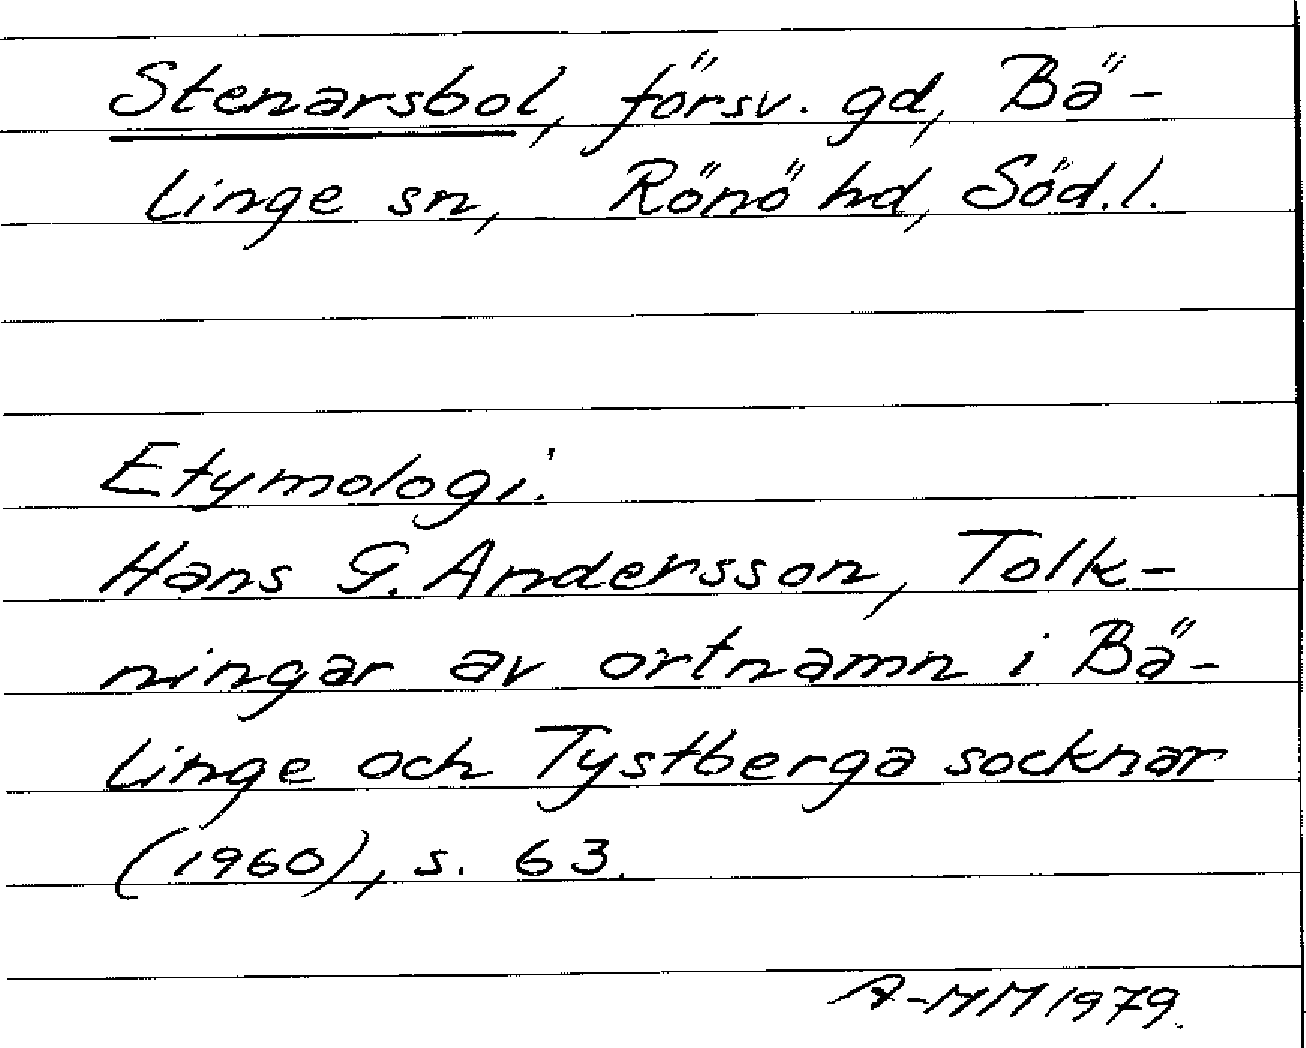 Stenarsbol, försv. gd, Bä-
linge sn, Rönö hd, Söd.l.
Etymologi:
Hans G. Andersson, Tolk-
ningar av ortnamn i Bä-
linge och Tystberga socknar
(1960), s. 63.
A-MM 1979.